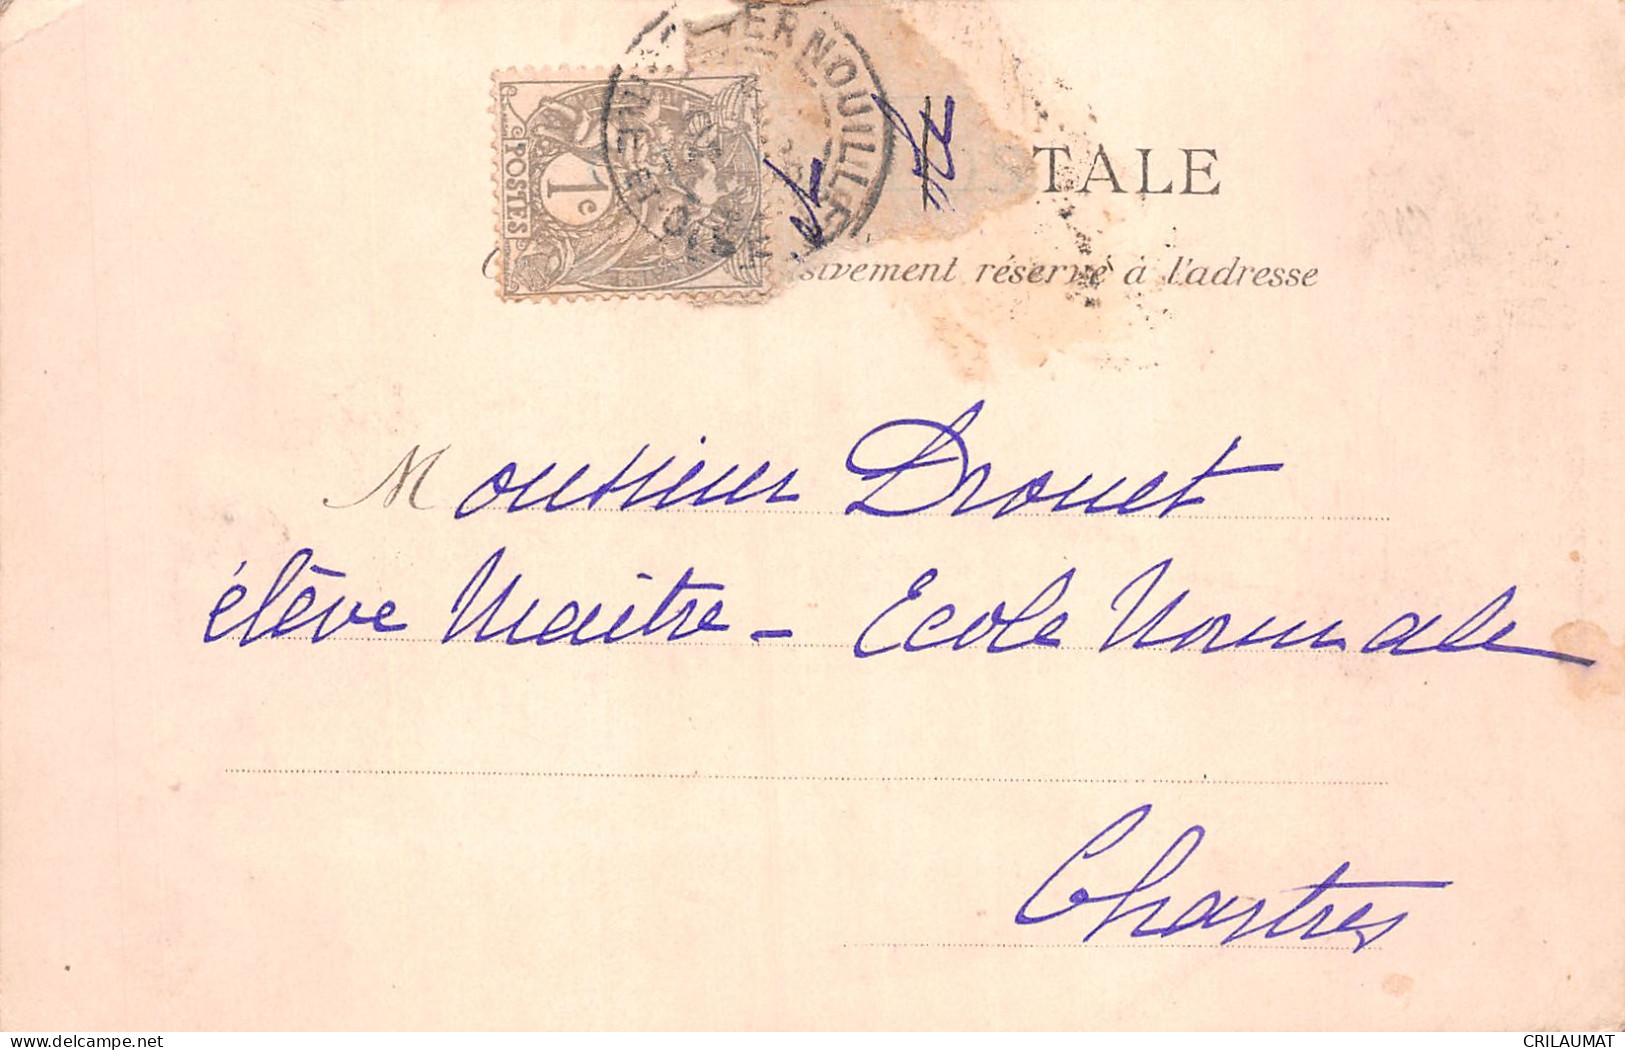 ERNOUILLE
POSTES
1c
STALE
sivement réservé à l'adresse
Monsieur Drouet
élève Maître - Ecole Normale
Chartres
www.delcampe.net
CRILAUMAT